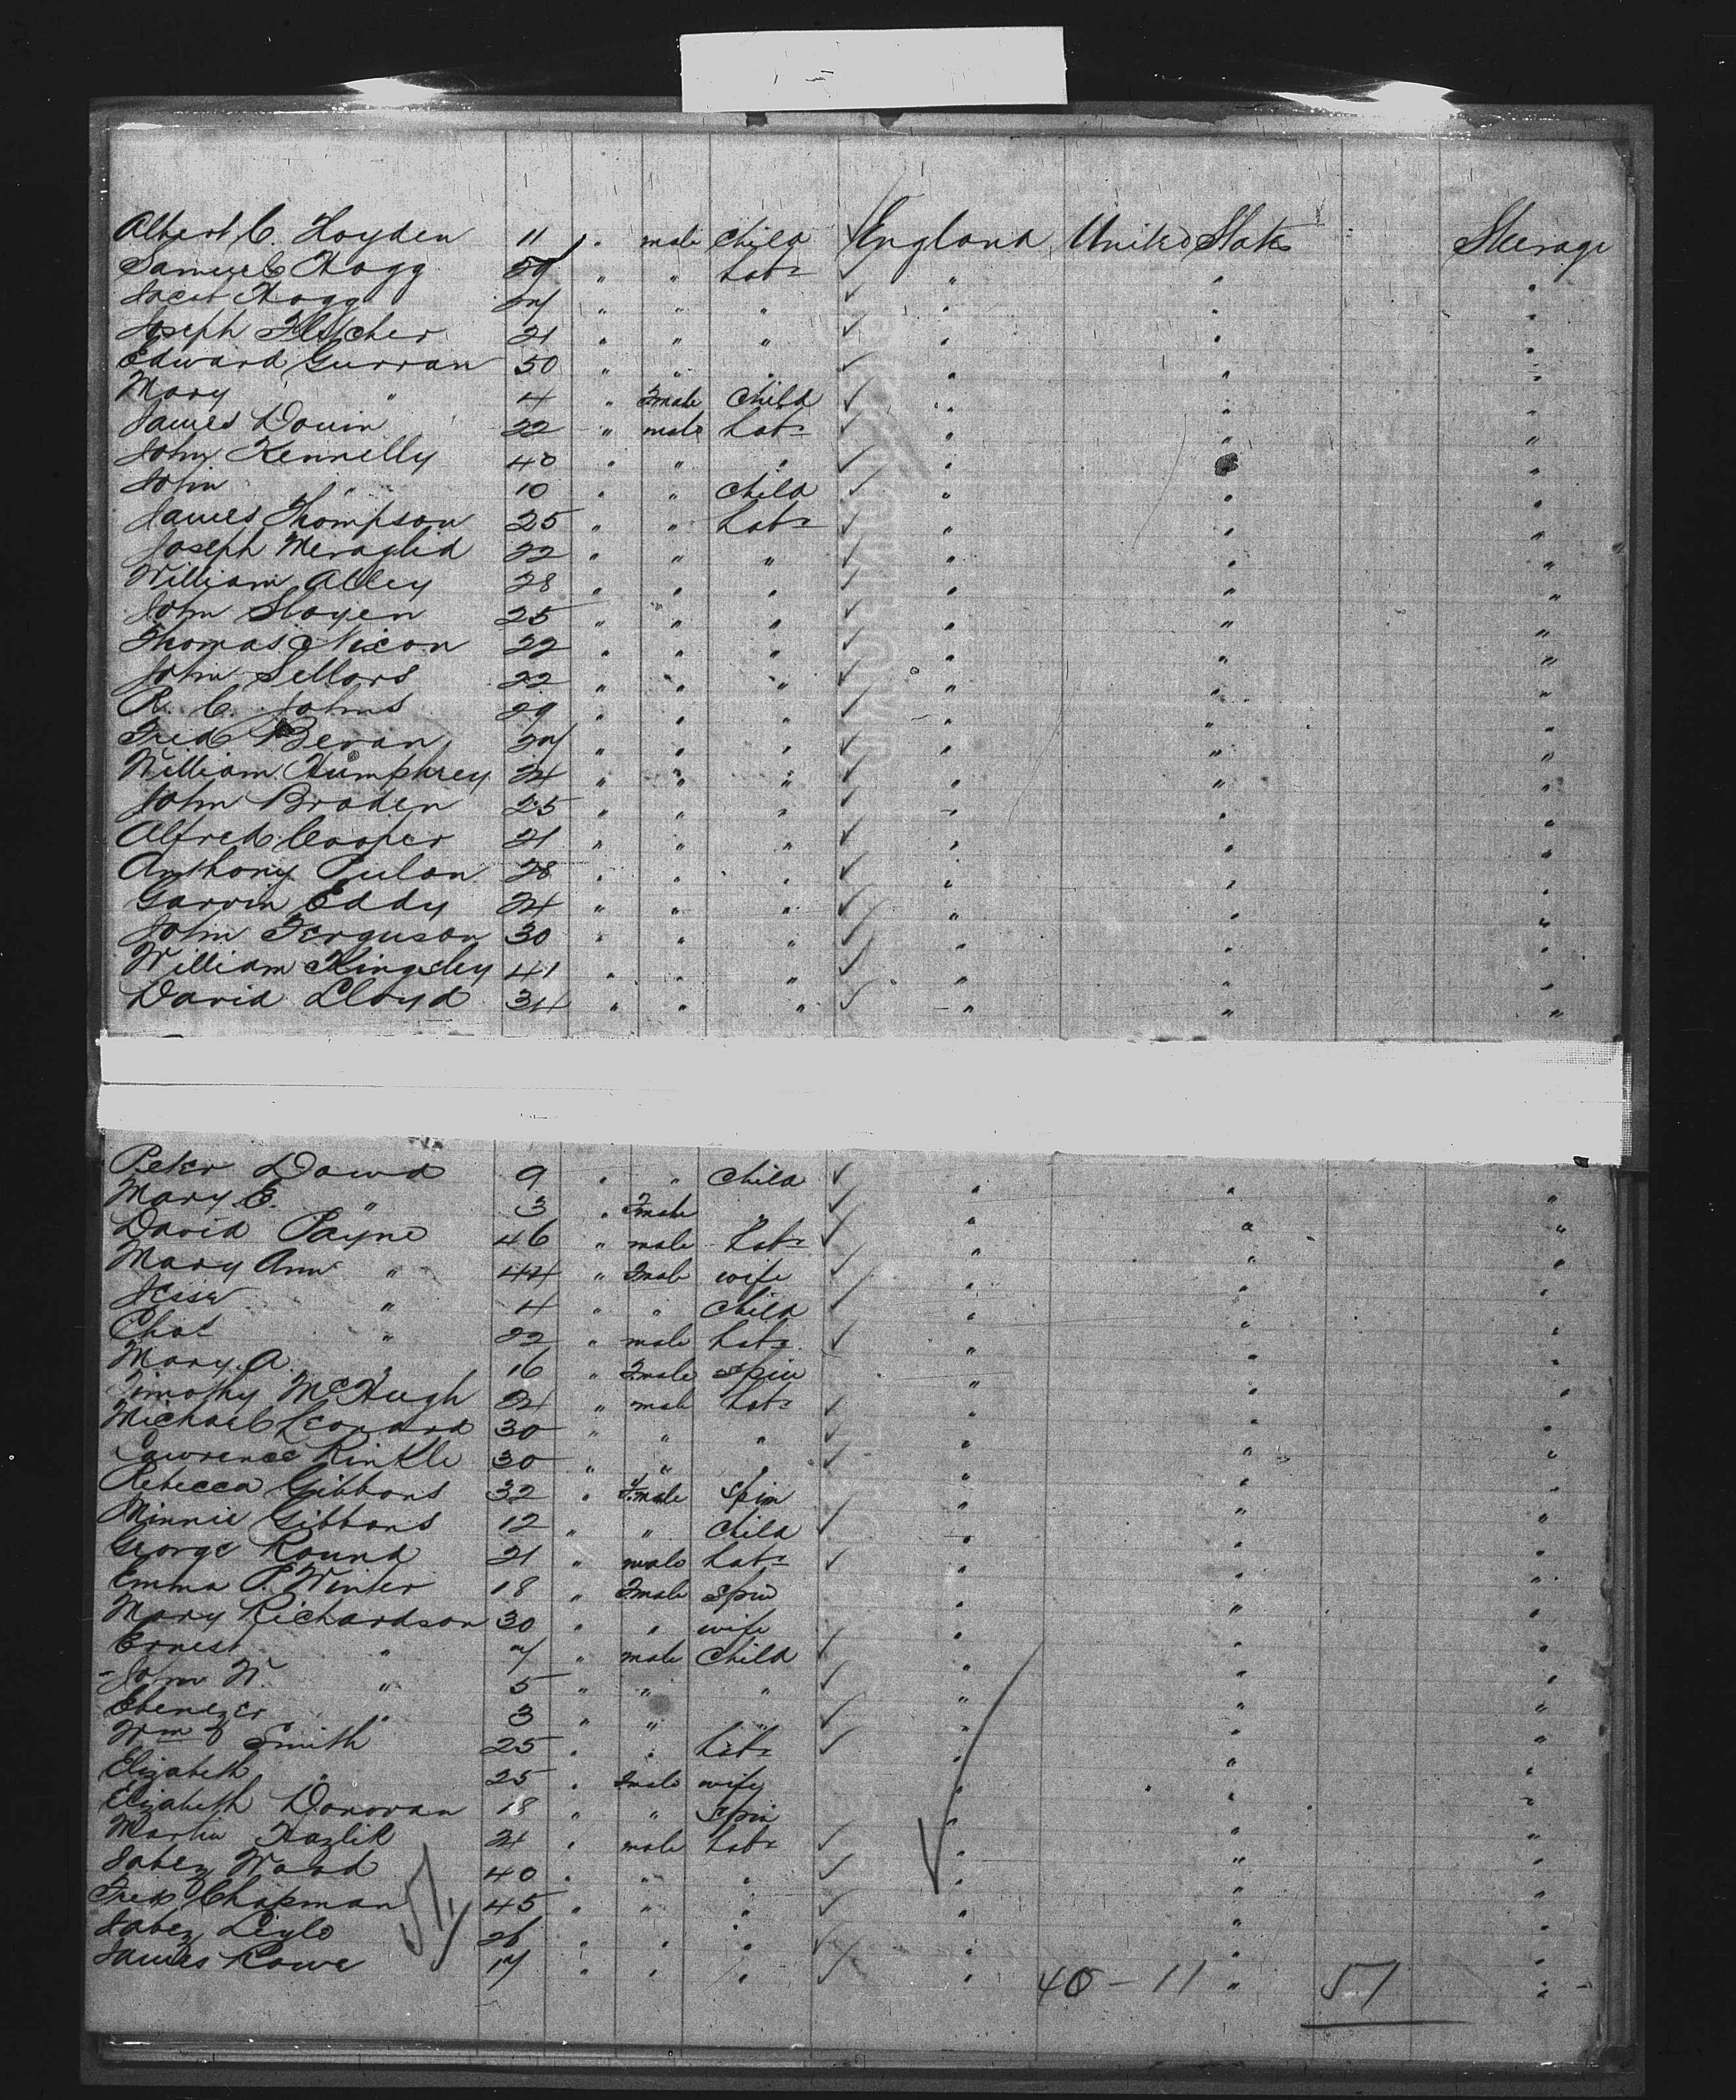 Albert C. Hoyden 11 " male Child England United States Steerage
Samuel Hogg 59 " " Labr " " "
Jacob Hogg 27 " " " " " "
Joseph Fletcher 21 " " " " " "
Edward Gurran 50 " " " " " "
Mary " 4 " Fmale Child " " "
James Douin 22 " male Labr " " "
John Kennelly 40 " " " " " "
John " 10 " " Child " " "
James Thompson 25 " " Labr " " "
Joseph 22 " " " " " "
William Alley 28 " " " " " "
John Hoyen 25 " " " " " "
Thomas Nixon 22 " " " " " "
John Sellors 22 " " " " " "
R. C. Johns 29 " " " " " "
Fred Bevan 27 " " " " " "
William Humphrey 24 " " " " " "
John Braden 25 " " " " " "
Alfred Cooper 21 " " " " " "
Anthony Pulan 28 " " " " " "
Garvin Eddy 24 " " " " " "
John Ferguson 30 " " " " " "
William Kingsley 41 " " " " " "
David Lloyd 34 " " " " " "
Peter Dowd 9 " " Child " " "
Mary E. " 3 " Fmale " " " "
David Payne 46 " male Labr " " "
Mary Ann " 44 " Fmale wife " " "
Jessie " 4 " " Child " " "
Chas " 22 " male Labr " " "
Mary A. " 16 " Fmale Spin " " "
Timothy McHugh 24 " male Labr " " "
Michael Leonard 30 " " " " " "
Lawrence Kinkle 30 " " " " " "
Rebecca Gibbons 32 " Fmale Spin " " "
Minnie Gibbons 12 " " Child " " "
George Round 21 " male Labr " " "
Emma P. Winter 18 " Fmale Spin " " "
Mary Richardson 30 " " wife " " "
Ernest " 7 " male Child " " "
John W. " 5 " " " " " "
Ebenezer " 3 " " " " " "
Wm Smith 25 " " Labr " " "
Elizabeth " 25 " Fmale wife " " "
Elizabeth Donovan 18 " " Spin " " "
Martin Hazlik 21 " male Labr " " "
Jabez Wood 40 " " " " " "
Fred Chapman 45 " " " " " "
Jabez 26 " " " " " "
James Rowe 17 " " " " " "
51
40 - 11 51